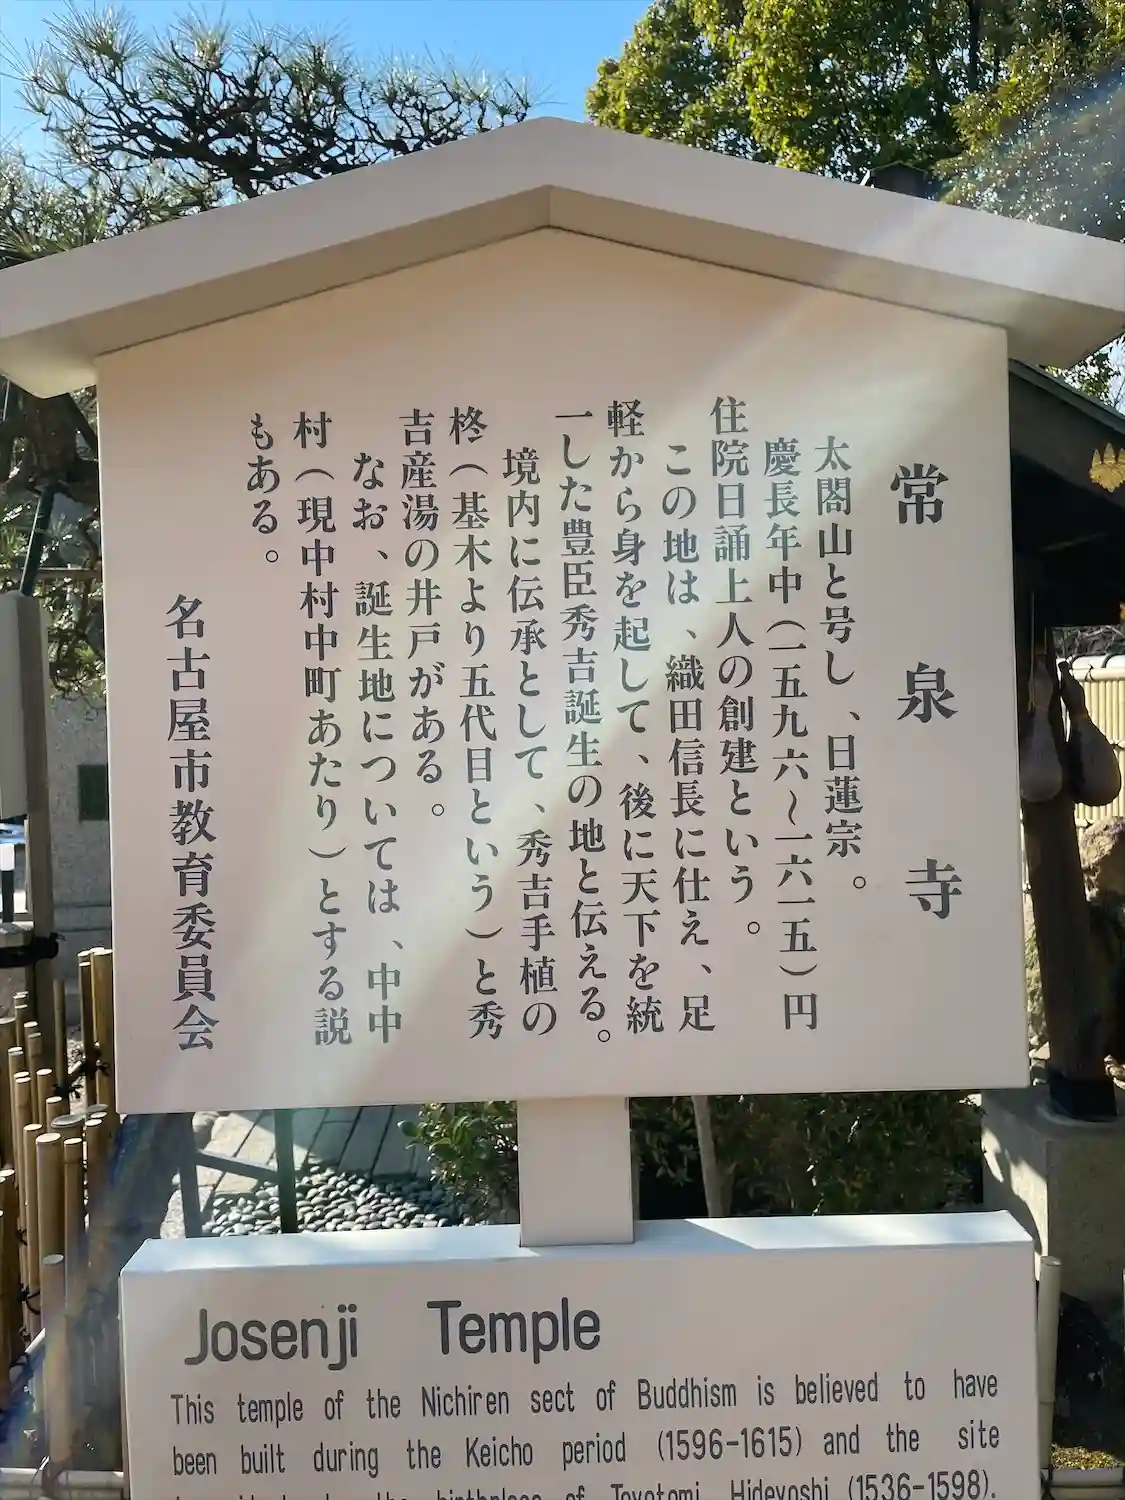 常泉寺
太閤山と号し、日蓮宗。
慶長年中(一五九六〜一六一五)円
住院日誦上人の創建という。
この地は、織田信長に仕え、足
軽から身を起して、後に天下を統
一した豊臣秀吉誕生の地と伝える。
境内に伝承として、秀吉手植の
柊(基木より五代目という)と秀
吉産湯の井戸がある。
なお、誕生地については、中中
村(現中村中町あたり)とする説
もある。
名古屋市教育委員会
Josenji Temple
This temple of the Nichiren sect of Buddhism is believed to have
been built during the Keicho period (1596-1615) and the site
the birthplace of Toyotomi Hideyoshi (1536-1598).